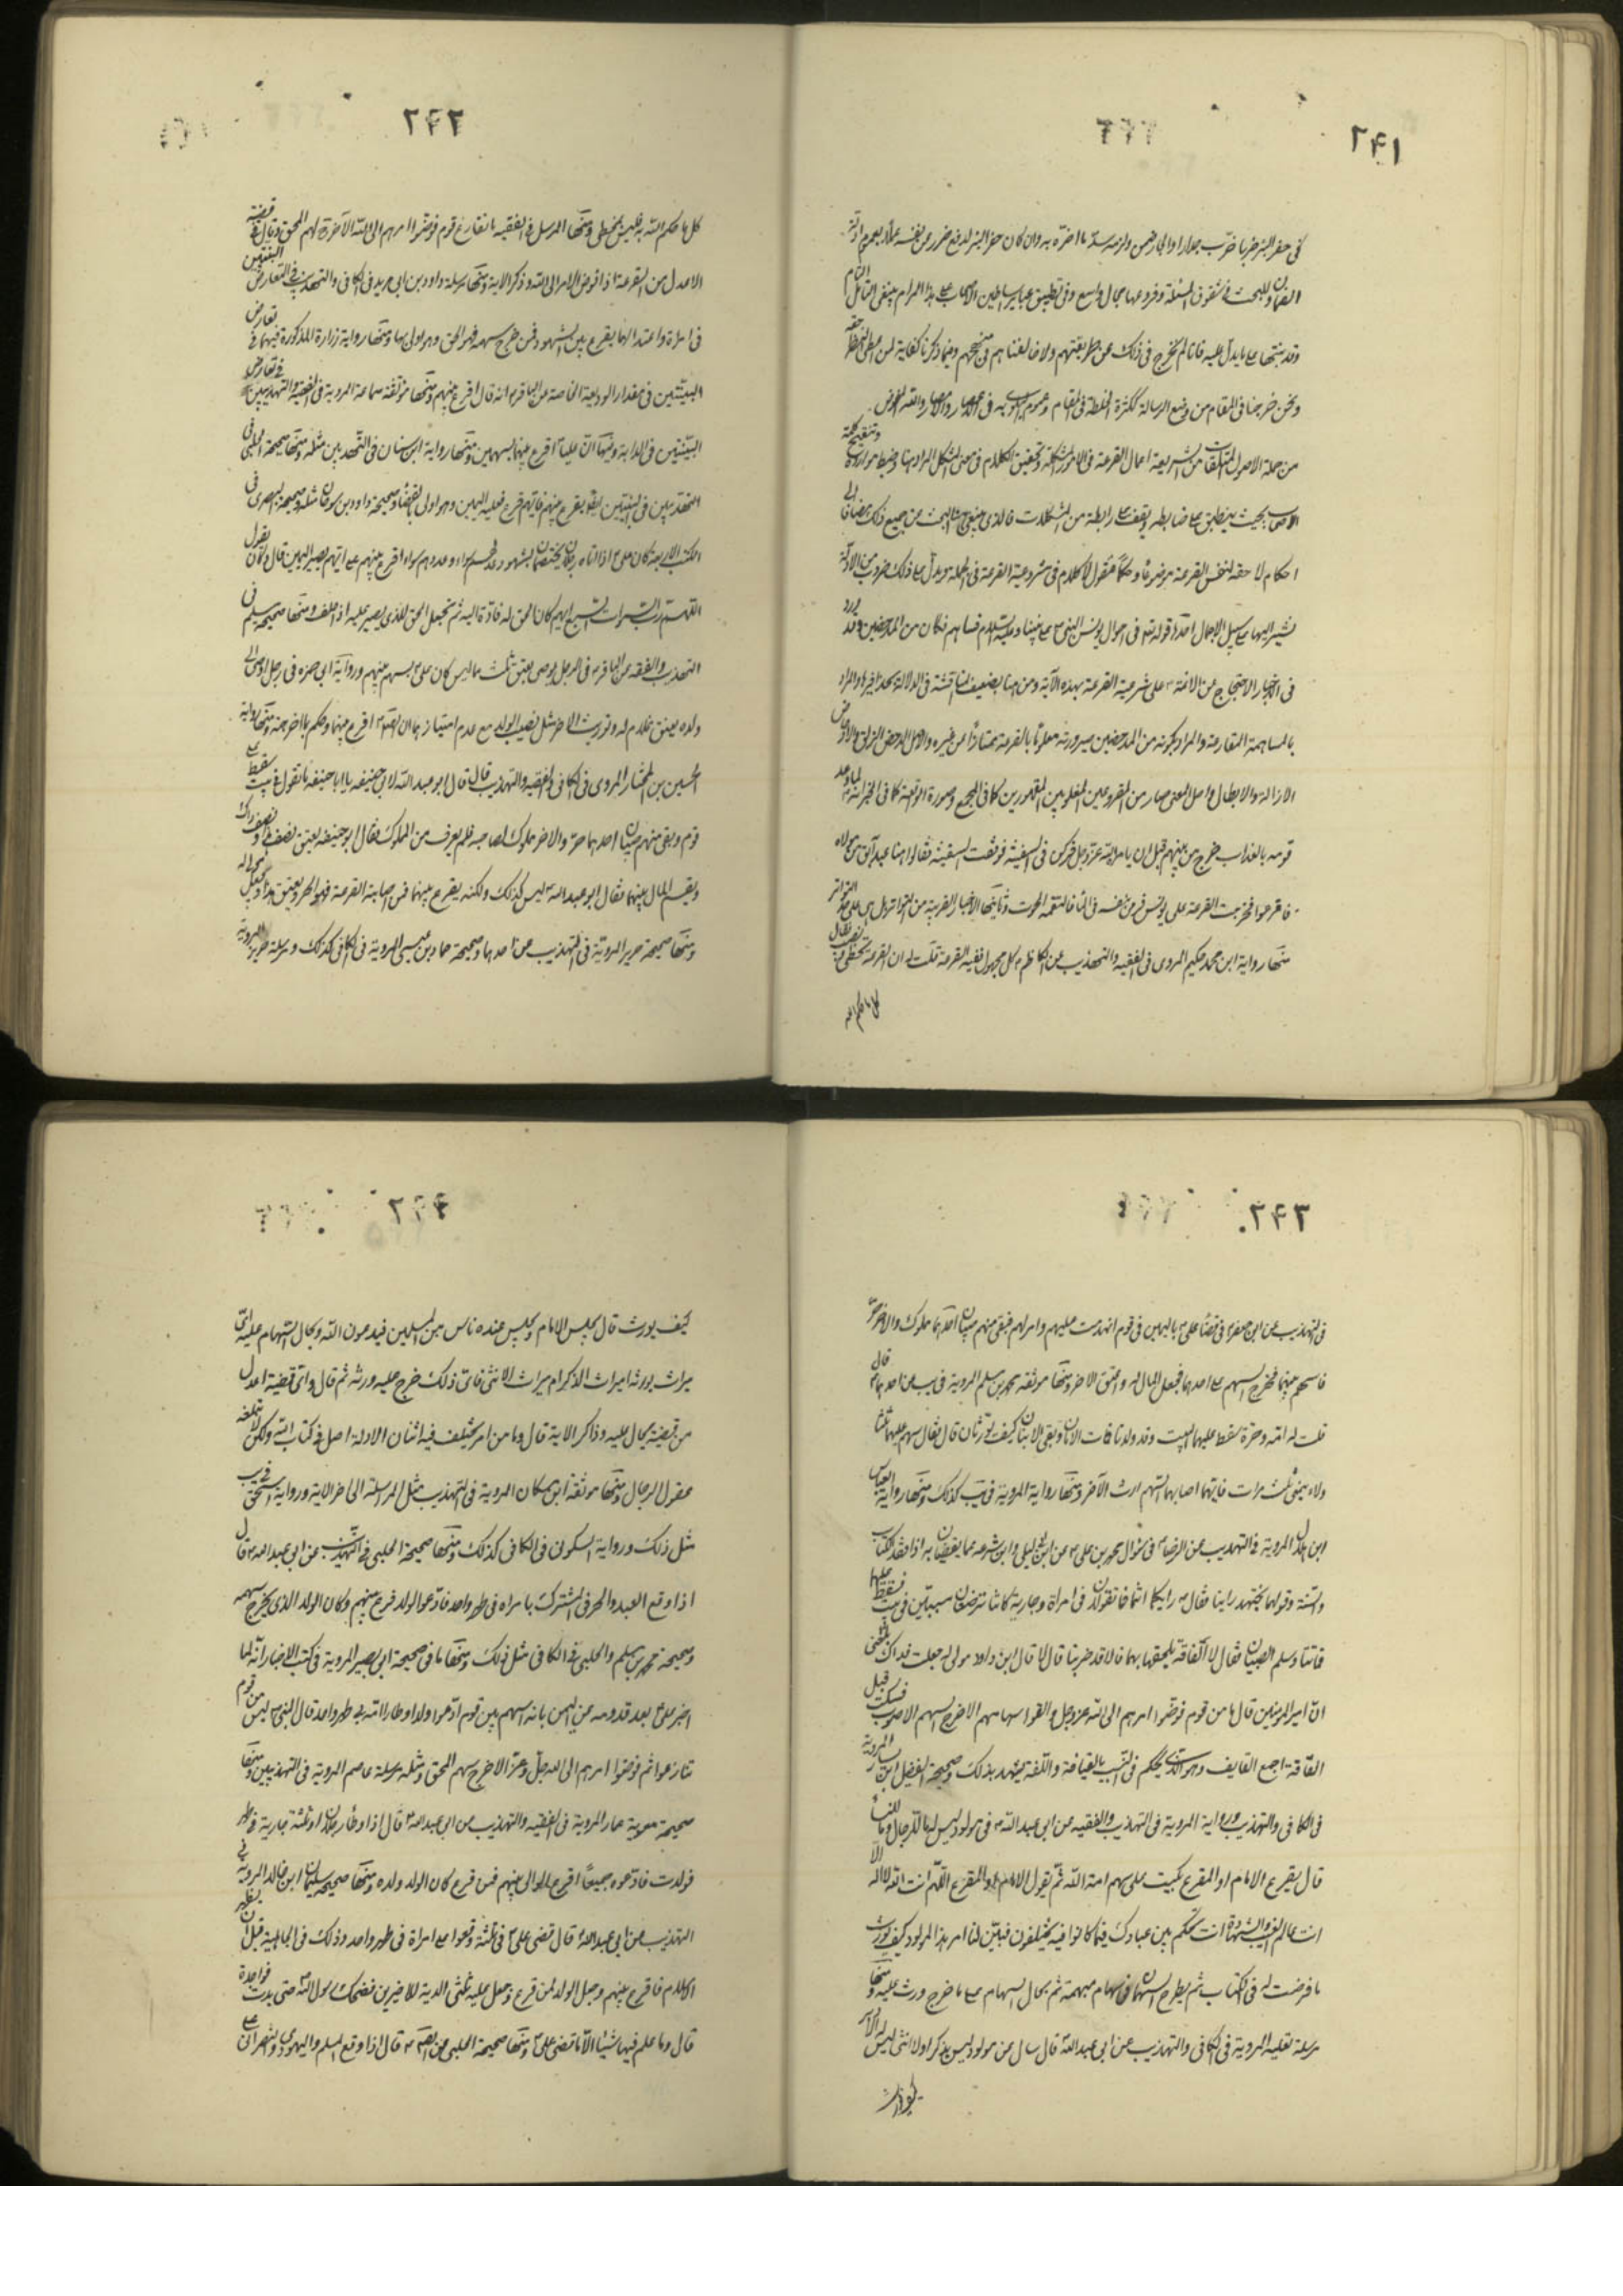 ٢۴١
في حفر البئر ضربا خرب جدارا او الجار ضمن ولزمه سدّ ما اضرّ به وان كان حفر البئر لدفع ضرر عن نفسه عملا بعموم ادلة
الضمان وللبحث في شقوق المسئلة وفروعها مجال واسع وفي تطبيق عباير اساطين الاصحاب على هذا المرام ينبغي التأمل التام
وقد بنتها على ما يدل عليه فانا لم نخرج في ذلك عن طريقتهم ولا خالفناهم في منهجهم وفيما ذكرنا كفاية لمن اعطى النظر حقه
ونحن خرجنا في المقام من وضع الرسالة لكثرة الخلطة في المقام وعموم البلوى به في الاعصار والامصار والله العوض
من جملة الاصول المتلقات من الشريعة اعمال القرعة في الامور المشكلة وتحقيق الكلام في معنى المشكل المراد هنا وضبط موارده وتنقيح كلمة
الاصحاب بحيث ينطبق على ضابطه او يقف على رابطة من المشكلات فالذي ينبغي هنا البحث عن جميع ذلك مضافا الى
احكام لاحقه لنفس القرعة موضوعًا وحكمًا فنقول الكلام في مشروعية القرعة في الجملة ويدل على ذلك ضروب من الادلة
نشير اليها على سبيل الاجمال احدها قوله تعه في احوال يونس النبي على نبينا وعليه السلام فساهم فكان من المدحضين وقد ورد
في الاخبار الاحتجاج عن الائمة ع على شرعية القرعة بهذه الآية ومن هنا يضعف المناقشة في الدلالة بعد اخبارها والمراد
بالمساهمة المقارعة والمراد بكونه من المدحضين صيرورته معلومًا بالقرعة ممتازًا عن غيره والاصل الدحض الزلق والادحاض
الازالة والابطال واصل المعنى صار من المقروعين المغلوبين المقهورين كما في المجمع وصورة الواقعة كما في الخبر انه لما وعد
قومه بالعذاب خرج من بينهم قبل ان يأمر الله عز وجل فركب في السفينة فوقفت السفينة فقالوا هنا عبد آبق من مولاه
فاقرعوا فخرجت القرعة على يونس فرمى نفسه في الماء فالتقمه الحوت وثانيها الاخبار القريبة من التواتر بل هي على حد التواتر
منها رواية ابن محمد حكيم المروي في الفقيه والتهذيب عن الكاظم ع كل مجهول ففيه القرعة قلت له ان القرعة تخطى وتصيب فقال
كل ما حكم الله
٢۴٢
كل ما حكم الله به فليس بمخطي ومنها المرسل في الفقيه ما تقارع قوم فوضوا امرهم الى الله الا خرج لهم المحق وقال اي قضية
الاعدل من القرعة اذا فوض الامر الى الله وذكر الاية ومنها مرسلة داود بن ابي يزيد في الكافي والتهذيب في التعارض البينتين
في امراة واعتدالهما يقرع بين الشهود فمن خرج سهمه فهو المحق وهو اولى بها ومنها رواية زرارة المذكورة فيهما في تعارض
البينتين في مقدار الوديعة الخاصة عن الباقر ع انه قال اقرع بينهم ومنها موثقة سماعة المروية في الفقيه والتهذيبين في تعارض
البينتين في الدابة وفيها ان عليا ع اقرع بينهما بسهمين ومنها رواية ابن سنان في التهذيبين مثله ومنها صحيحة الحلبي في
التهذيبين في البينتين ايضًا يقرع بينهم فايهم قرع فعليه اليمين وهو اولى بالقضاء وصحيحة داود بن سرحان مثله وصحيحة البصري في
الكتب الاربعة كان علي ع اذا اتاه رجلان يختصمان بشهود عدلهم سواء وعددهم سواء اقرع بينهم على ايهم يصير اليمين قال وكان يقول
اللهم رب السموات السبع ايهم كان الحق له فادّه اليه ثم يجعل الحق للذي يصير عليه اذا حلف ومنها صحيحة مسلم في
التهذيب والفقيه عن الباقر ع في الرجل يوصى بعتق ثلث مماليكه كان علي ع يسهم بينهم ورواية ابي حمزه في رجل اوصى الى
ولده بعتق غلام له وتوريث الاخر مثل نصيب الولد مع عدم امتياز هما ان الصادق ع اقرع بينهما وحكم بالخرجة ومنها رواية
الحسين بن المختار المروي في الكافي والفقيه والتهذيب قال قال ابو عبد الله لابي حنيفه يا ابا حنيفه ما تقول في بيت سقط على
قوم وبقى منهم صبيان احدهما حر والاخر مملوك لصاحبه فلم يعرف الحر من المملوك فقال ابو حنيفه يعتق نصف هذا ونصف ذاك
ويقسم المال بينهما فقال ابو عبد الله ع ليس كذلك ولكنه يقرع بينهما فمن اصابته القرعة فهو الحر ويعتق هذا ويجعل مولى له
ومنها صحيحة حريز المروية في التهذيب عن احدهما وصحيحة حماد بن عيسى المروية في الكافي كذلك ومرسلة حريز المروية
٢۴٣
في التهذيب عن ابي جعفر ع في قضاء علي ع باليمن في قوم انهدمت عليهم دارهم فبقى منهم صبيان احدهما مملوك والاخر حر
فاسهم بينهما فخرج السهم على احدهما فجعل المال له واعتق الاخر ومنها موثقة محمد بن مسلم المروية في يب عن احدهما ع قال
قلت له امة وحرة سقط عليهما البيت وقد ولدتا فماتت الامان وبقى الابنان كيف يورثان قال فقال يسهم عليهما ثلثا
ولاء يعنى ثلث مرات فايهما اصابه السهم ورث الآخر ومنها رواية المروية في يب كذلك ومنها رواية العباس
ابن هلال المروية في التهذيب عن الرضا ع في سؤال محمد بن علي ع عن ابن ابي ليلى وابن شبرمه عما يقضيان به اذا فقد الكتاب
والسنة وقولهما نجتهد راينا فقال ع رايكما انتما فما تقولان في امراة وجارية كانتا ترضعان صبيين في بيت فسقط عليهما
فماتتا وسلم الصبيان فقال لا القافة يلحقها بهما فالا قد خربنا قال لا قال ابن داود مولى له جعلت فداك بلغنى
ان امير المؤمنين قال ما من قوم فوضوا امرهم الى الله عز وجل والقوا سهامهم الا خرج السهم الاصوب فسكت قيل
القافة جمع القايف وهو الذي يحكم في النسب بالقيافة واللغة يشهد بذلك وصحيحة الفضيل ابن يسار المروية
في الكافي والتهذيب ورواية المروية في التهذيب والفقيه عن ابي عبد الله ع في مولود ليس له ما للرجال وما للنساء
قال يقرع الامام او المقرع يكتب على سهم امة الله ثم يقول الامام او المقرع اللهم انت الله لا اله الا
انت عالم الغيب والشهادة انت تحكم بين عبادك فيما كانوا فيه يختلفون فبين لنا امر هذا المولود كيف يورث
ما فرضت له في الكتاب ثم يطرح السهمان في سهام مبهمة ثم يجال السهام على ما خرج ورث عليه ومنها
مرسلة ثعلبة المروية في الكافي والتهذيب عن ابي عبد الله قال سال عن مولود ليس بذكر او لا انثى ليس له الا دبر
كيف يورث
٢۴۴
كيف يورث قال يجلس الامام ويجلس عنده ناس من المسلمين فيدعون الله ويجال السهام عليه اي
ميراث يورثه اميراث الذكر ام ميراث الانثى فاي ذلك خرج عليه ورثه ثم قال واي قضية اعدل
من قضية يجال عليه وذاكر الاية قال وما من امر يختلف فيه اثنان الا وله اصل في كتاب الله ولكن لا تبلغه
عقول الرجال ومنها موثقة ابن مسكان المروية في التهذيب مثل المراسلة الى اخر الاية ورواية اسحق في يب
مثل ذلك ورواية السكوني في الكافي كذلك ومنها صحيحة الحلبي في التهذيب عن ابي عبد الله ع قال
اذا وقع العبد والحر في المشترك بامراه في طهر واحد فادعوا الولد قرع بينهم وكان الولد الذي يخرج سهمه
وصحيحة محمد بن مسلم والحلبي في الكافي مثل ذلك ومنها ما في صحيحة ابي بصير المروية في كتب الاخبار انه لما
اخبر علي ع بعد قدومه من اليمن بانه اسهم بين قوم ادعوا ولدا وطاء الامة في طهر واحد قال النبي ع ليس من قوم
تنازعوا ثم فوضوا امرهم الى الله جل وعز الا خرج سهم المحق ومثله مرسلة عاصم المروية في التهذيبين ومنها
صحيحة معوية عمار المروية في الفقيه والتهذيب عن ابي عبد الله ع قال اذا وطأ رجلان او ثلثة جارية في طهر
فولدت فادعوه جميعًا اقرع الوالي بينهم فمن قرع كان الولد ولده ومنها صحيحة سليمان ابن خالد المروية في
التهذيب عن ابي عبد الله قال قضى علي ع في ثلثة وقعوا على امراة في طهر واحد وذلك في الجاهلية قبل ان يظهر
الاسلام فاقرع بينهم وجعل الولد لمن قرع وجعل عليه ثلثى الدية للاخيرين فضحك رسول الله ص حتى بدت نواجده
قال وما علم فيها شيئا الا ما قضى علي ع ومنها صحيحة الحلبي عن الصادق ع قال اذا وقع المسلم واليهودي والنصراني على